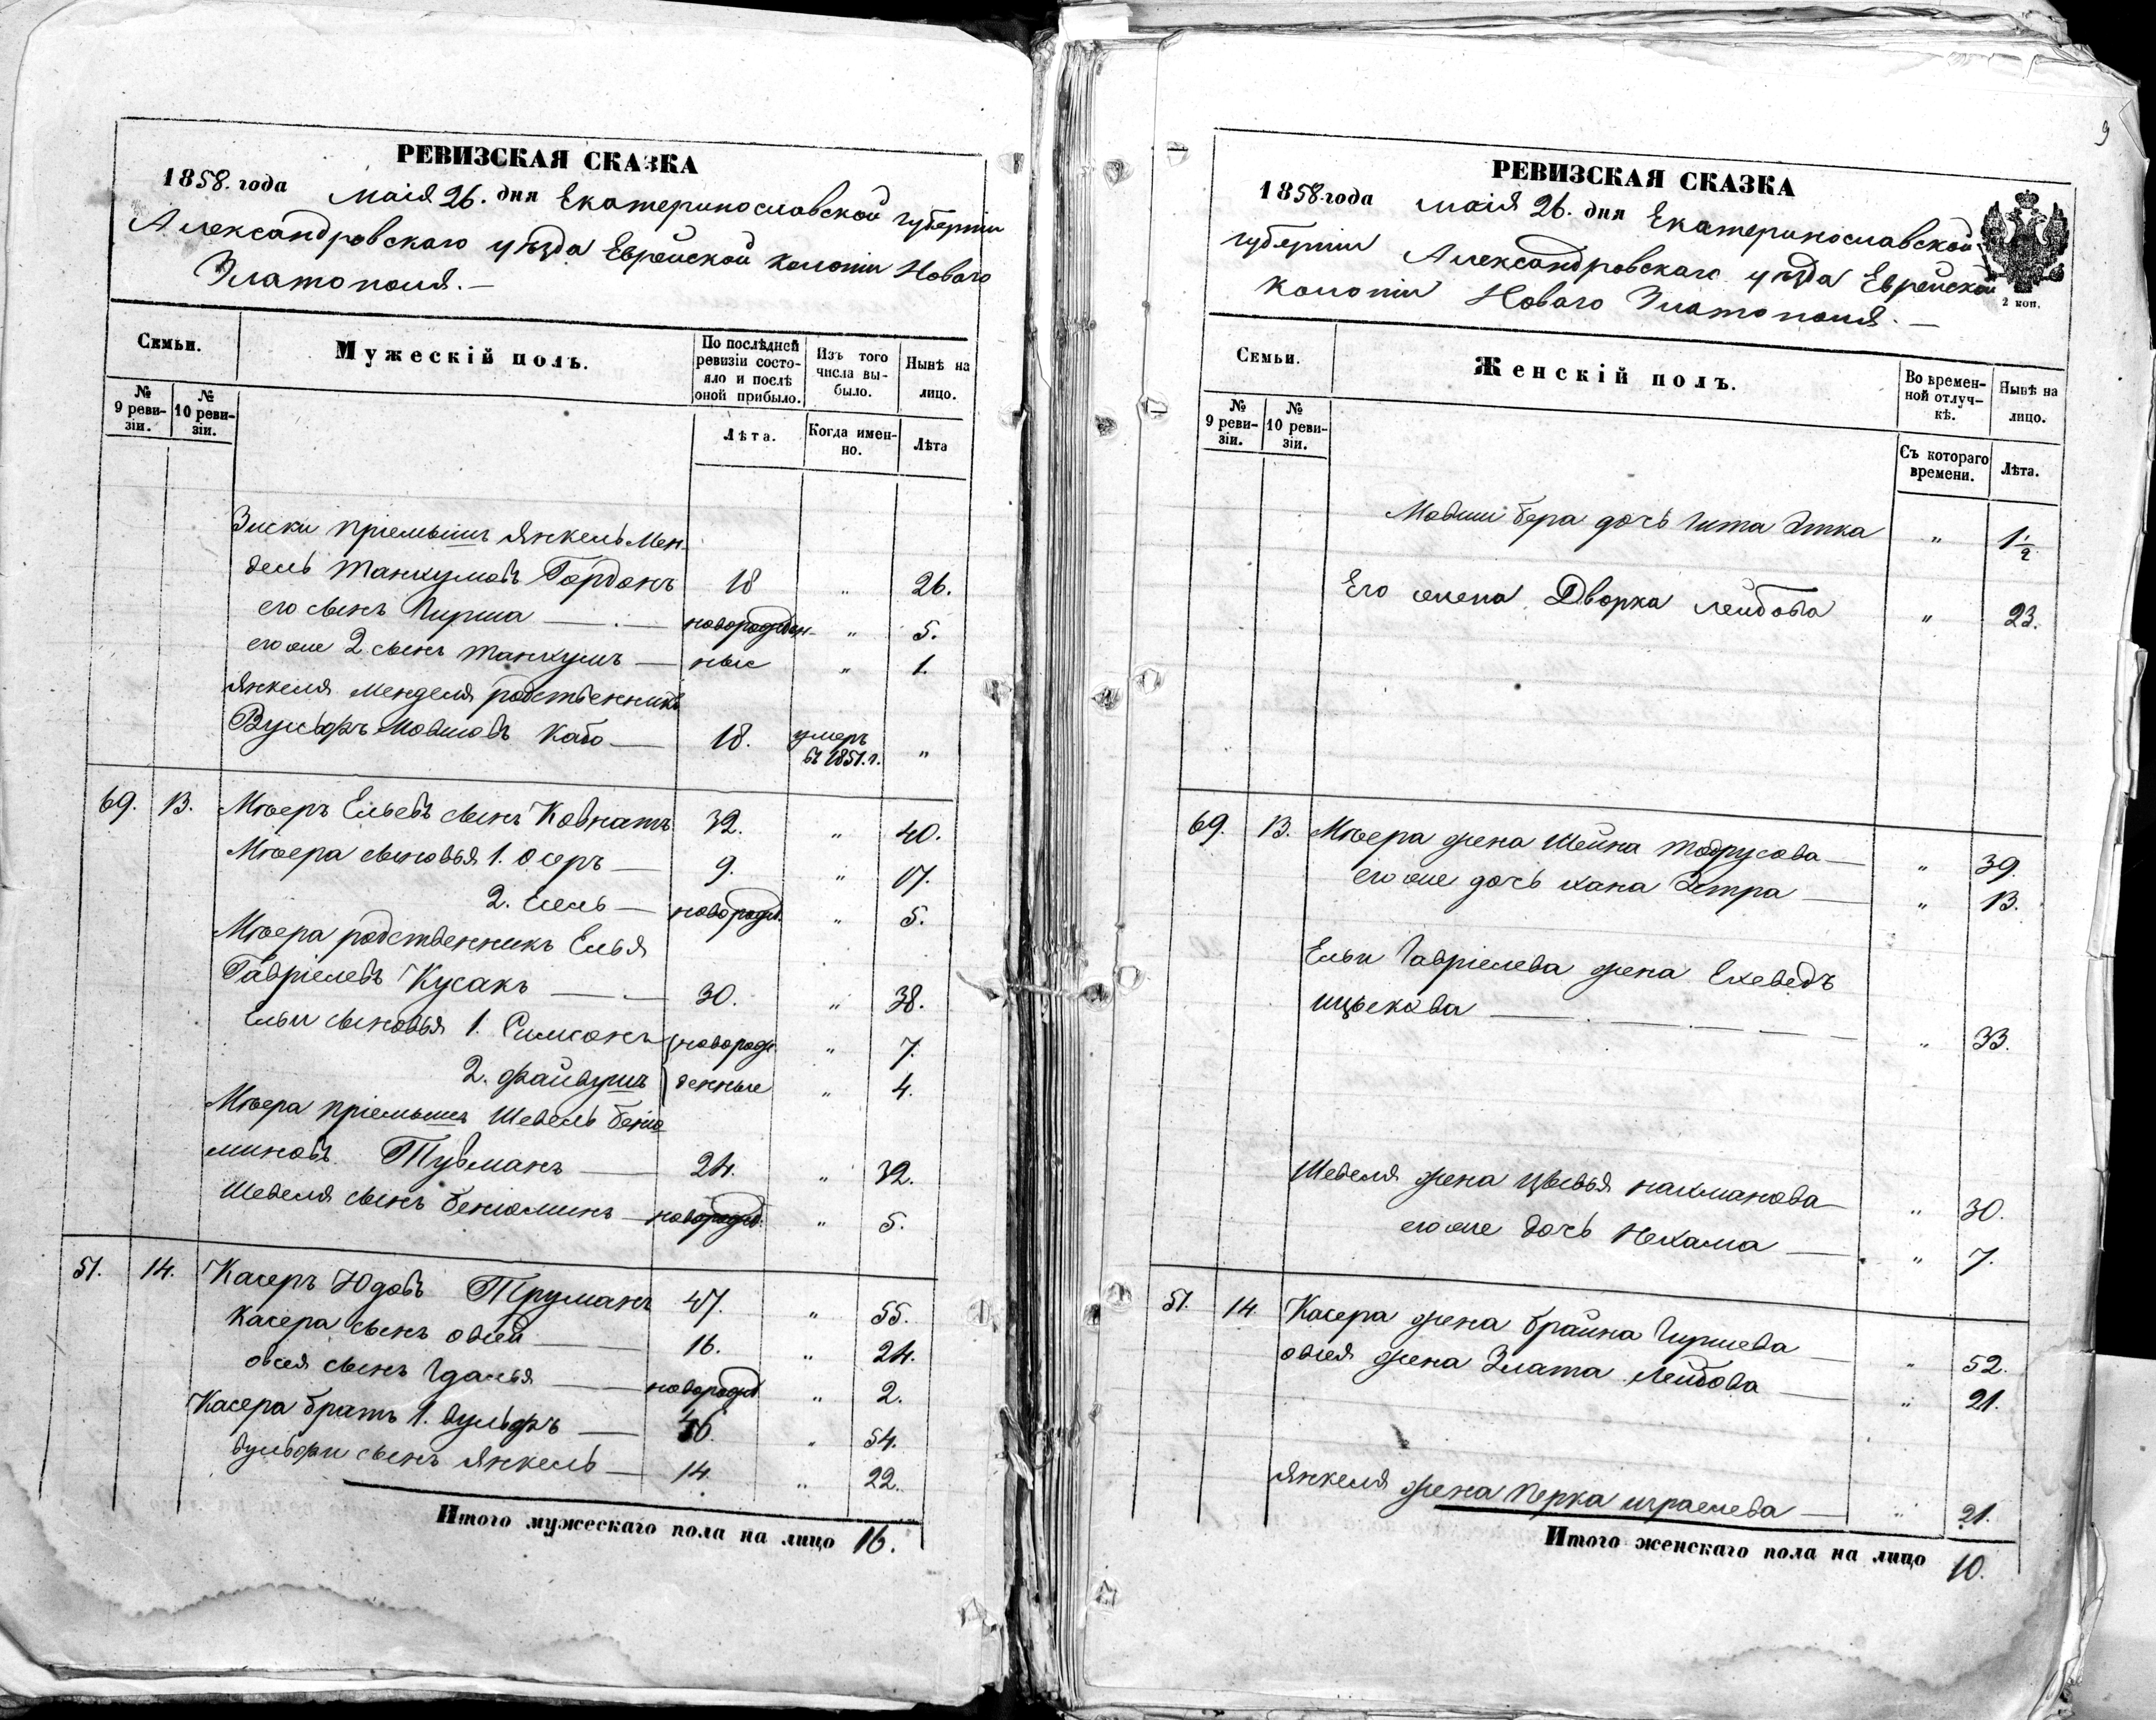 РЕВИЗСКАЯ СКАЗКА
1858. года маія 26. дня Екатеринославской губерніи
Александровскаго уѣзда Еврейской колоніи Новаго
Златополя. —
Семьи.
Мужескій полъ.
По послѣдней ревизіи состояло и послѣ оной прибыло.
Изъ того числа выбыло.
Нынѣ на лицо.
№ 9 ревизіи.
№ 10 ревизіи.
Лѣта.
Когда именно.
Лѣта
Зиски пріемышъ Янкель Мен-
дель Танхумовъ Гордонъ 18 " 26.
его сынъ Гирша — новорожден- " 5.
его же 2 сынъ Танхумъ — ные " 1.
Янкеля Менделя родственникъ
Вульфъ Мовшовъ Кабо — 18. умеръ въ 1851. г. "
69. 13. Мееръ Ельевъ сынъ Ковнатъ 32. " 40.
Меера сыновья 1. Осеръ — 9. " 17.
2. — новорожд. " 5.
Меера родственникъ Елья
Гавріелевъ Кусакъ — 30. " 38.
Ельи сыновья 1. Симхонъ новорож- " 7.
2. Файвушъ денные " 4.
Меера пріемышъ Шевель Бенiо-
миновъ Тувманъ — 24. " 32.
Шевеля сынъ Беніоминъ — новорожд. " 5.
51. 14. Касеръ Юдовъ Труманъ 47. " 55.
Касера сынъ Овсей — 16. " 24.
Овсея сынъ Гдалья — новорожд. " 2.
Касера братъ 1. Вульфъ — 46. " 54.
Вульфи сынъ Янкель — 14. " 22.
Итого мужескаго пола на лицо 16.
9
РЕВИЗСКАЯ СКАЗКА
1858 года маія 26. дня Екатеринославской
губерніи Александровскаго уѣзда Еврейской
колоніи Новаго Златополя. —
2 коп.
Семьи.
Женскій полъ.
Во временной отлучкѣ.
Нынѣ на лицо.
№ 9 ревизіи.
№ 10 ревизіи.
Съ котораго времени.
Лѣта.
Мовши Бера дочь Гита Этка " 1 1/2
Его жена Дворка Лейбова " 23.
69. 13. Меера жена Шейна Тодрусова — " 39.
его же дочь Хана Эстра — " 13.
Ельи Гавріелева жена Ехеведъ
Ицькова — " 33.
Шевеля жена Цывья Нахманова — " 30.
его же дочь Нехама — " 7.
51. 14 Касера жена Брайна Гиршева — " 52.
Овсея жена Злата Лейбова — " 21.
Янкеля жена Перка Израелева — " 21.
Итого женскаго пола на лицо 10.